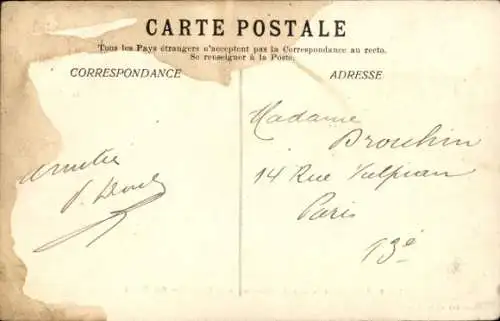 CARTE POSTALE
Tous les Pays étrangers n'acceptent pas la Correspondance au recto.
Se renseigner à la Poste.
CORRESPONDANCE
ADRESSE
Amitié
Madame
Brouhin
14 Rue Vulpian
Paris
13e